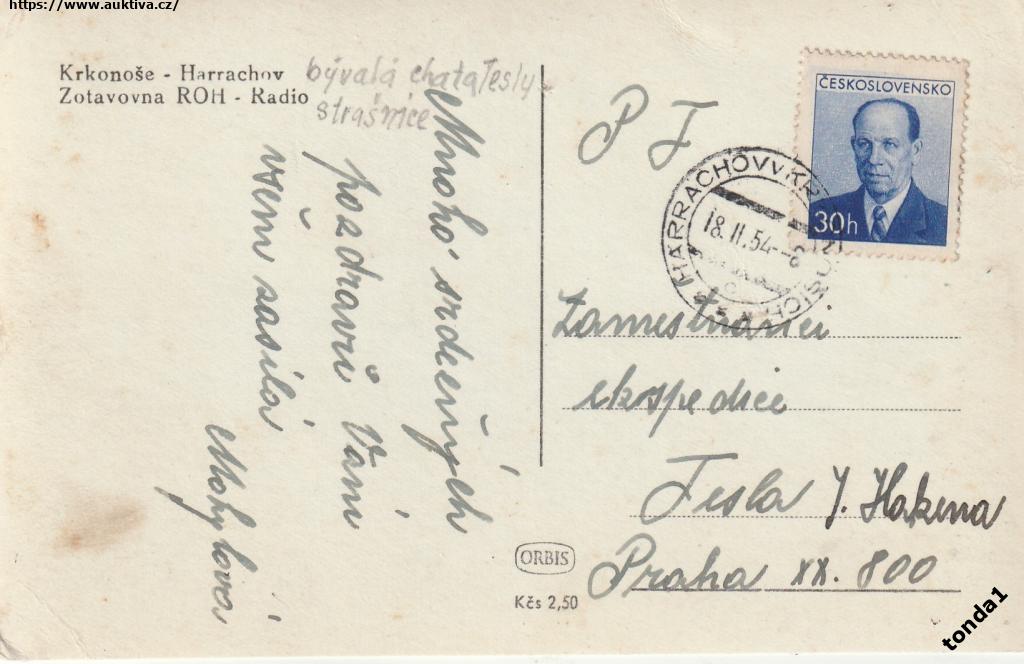 https://www.auktiva.cz/
Krkonoše - Harrachov
Zotavovna ROH - Radio
bývalá chata Tesly
strašnice
Mnoho srdečných
pozdravů Vám
všem zasílá
Mohylová
P T
ČESKOSLOVENSKO
30h
HARRACHOV V KRK
18.II.54
Zaměstnanci
ekspedice
Tesla J. Hakena
Praha XX. 800
ORBIS
Kčs 2,50
tonda1